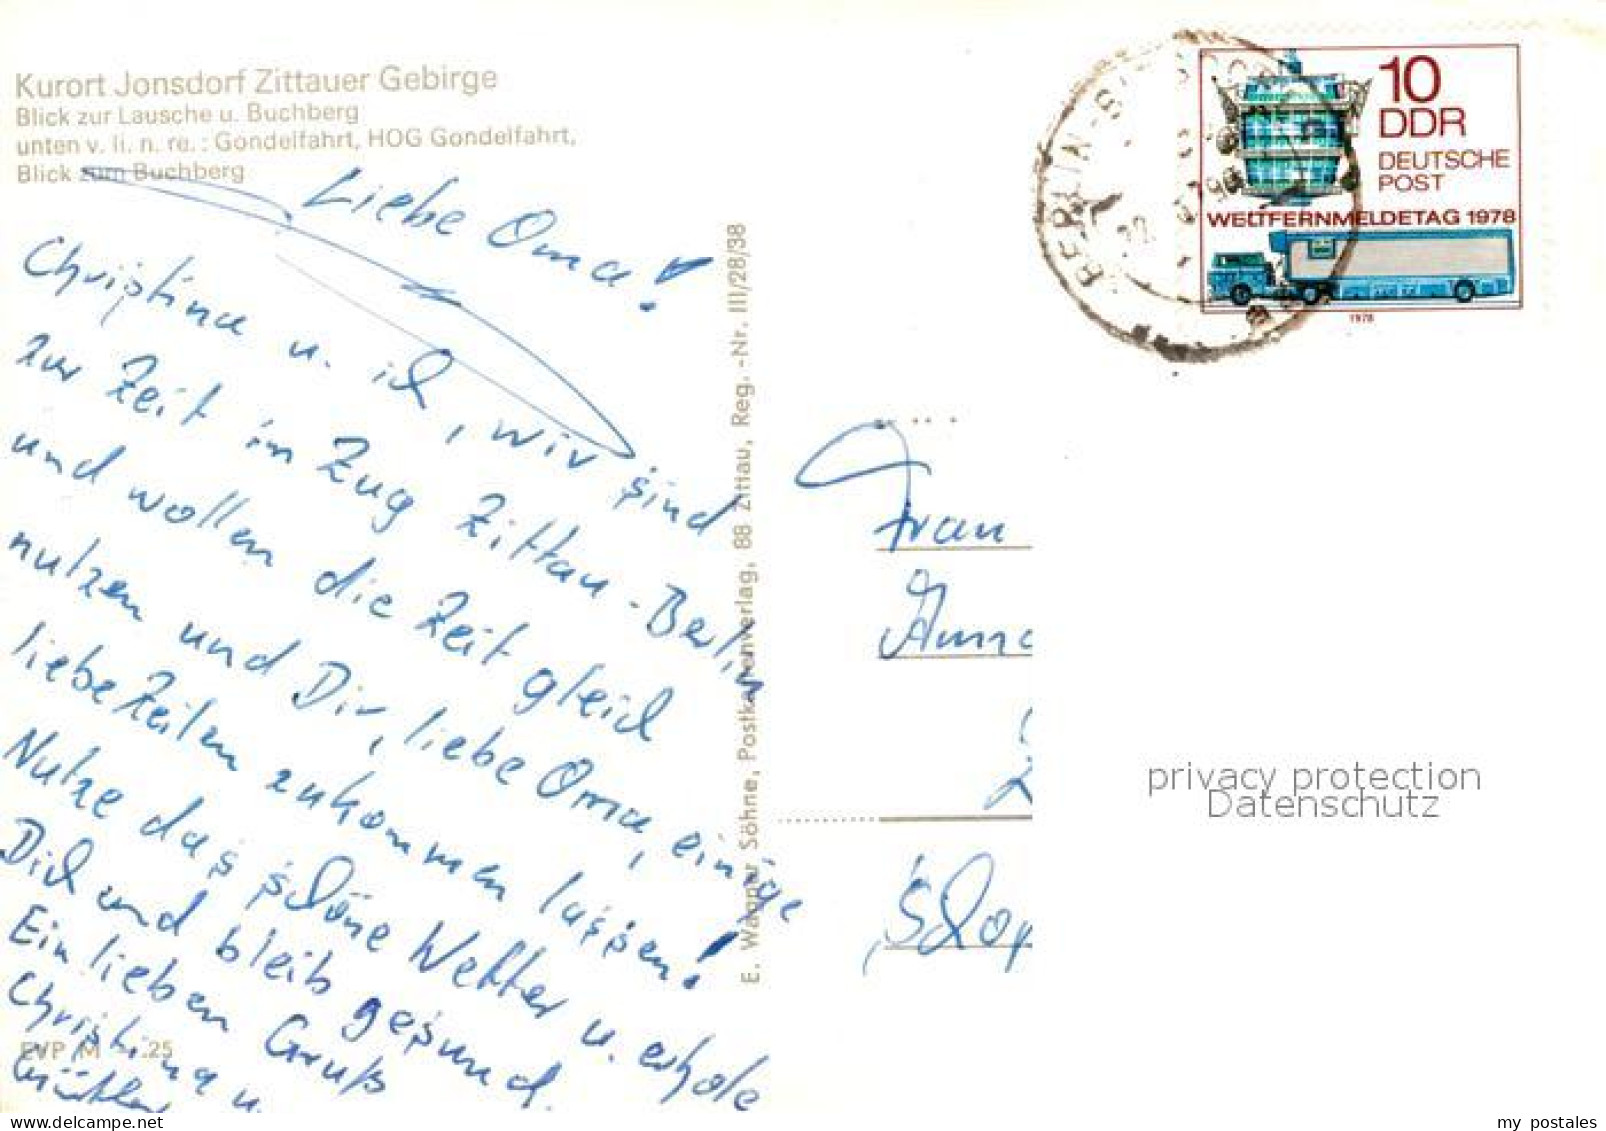 Kurort Jonsdorf Zittauer Gebirge
Blick zur Lausche u. Buchberg
unten v. li. n. re.: Gondelfahrt, HOG Gondelfahrt,
Blick zum Buchberg
Liebe Oma!
Christina u. ich, wir sind
zur Zeit im Zug Zittau-Berlin
und wollen die Zeit gleich
nutzen und Dir, liebe Oma, einige
liebe Zeilen zukommen lassen!
Nutze das schöne Wetter u. erhole
Dich und bleib gesund.
Ein lieben Gruß
Christina u.
EVP M -.25
E. Wagner Söhne, Postkartenverlag, 88 Zittau, Reg.-Nr. III/28/38
10
DDR
DEUTSCHE
POST
WELTFERNMELDETAG 1978
1978
Frau
Anna
privacy protection
Datenschutz
my postales